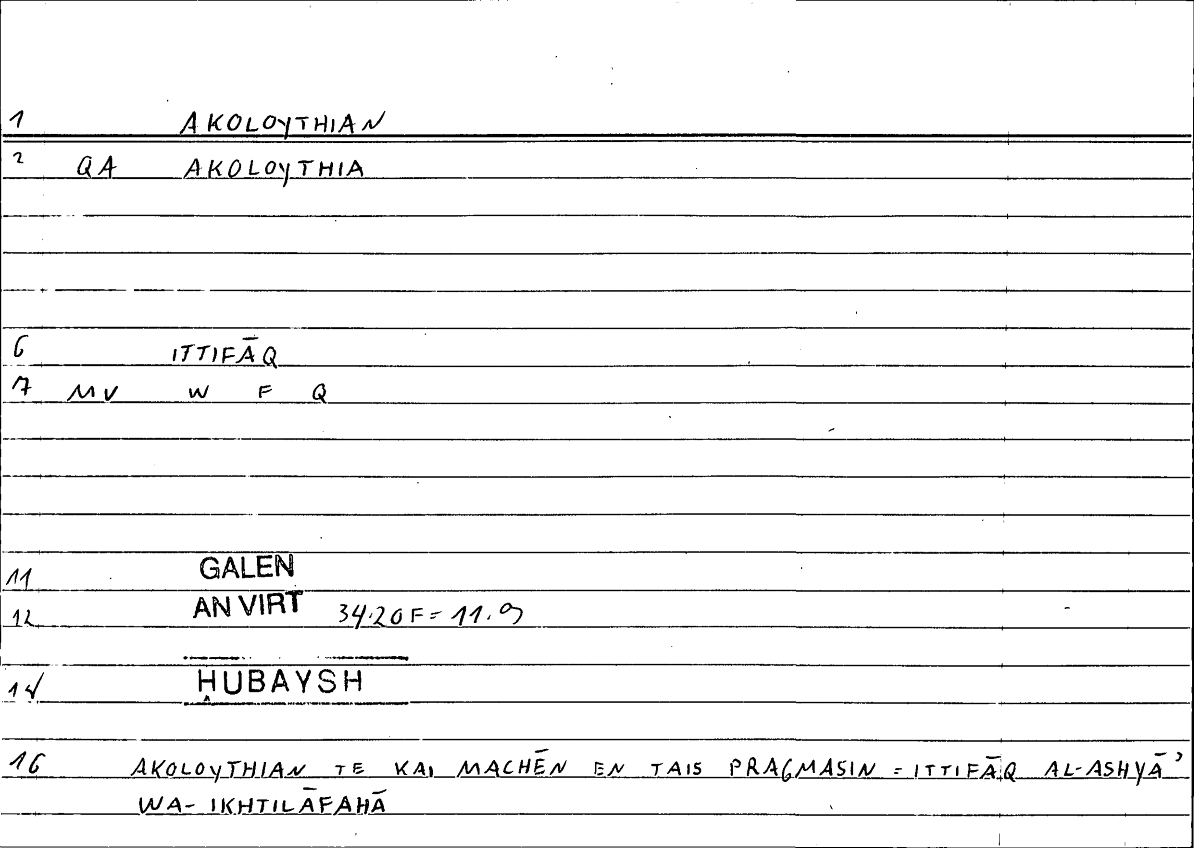 1 AKOLOYTHIAN
2 QA AKOLOYTHIA
6 ITTIFĀQ
7 MV W F Q
11 GALEN
12 AN VIRT 34.20F = 11.9
14 ḤUBAYSH
16 AKOLOYTHIAN TE KAI MACHĒN EN TAIS PRAGMASIN = ITTIFĀQ AL-ASHYĀʾ
WA-IKHTILĀFAHĀ